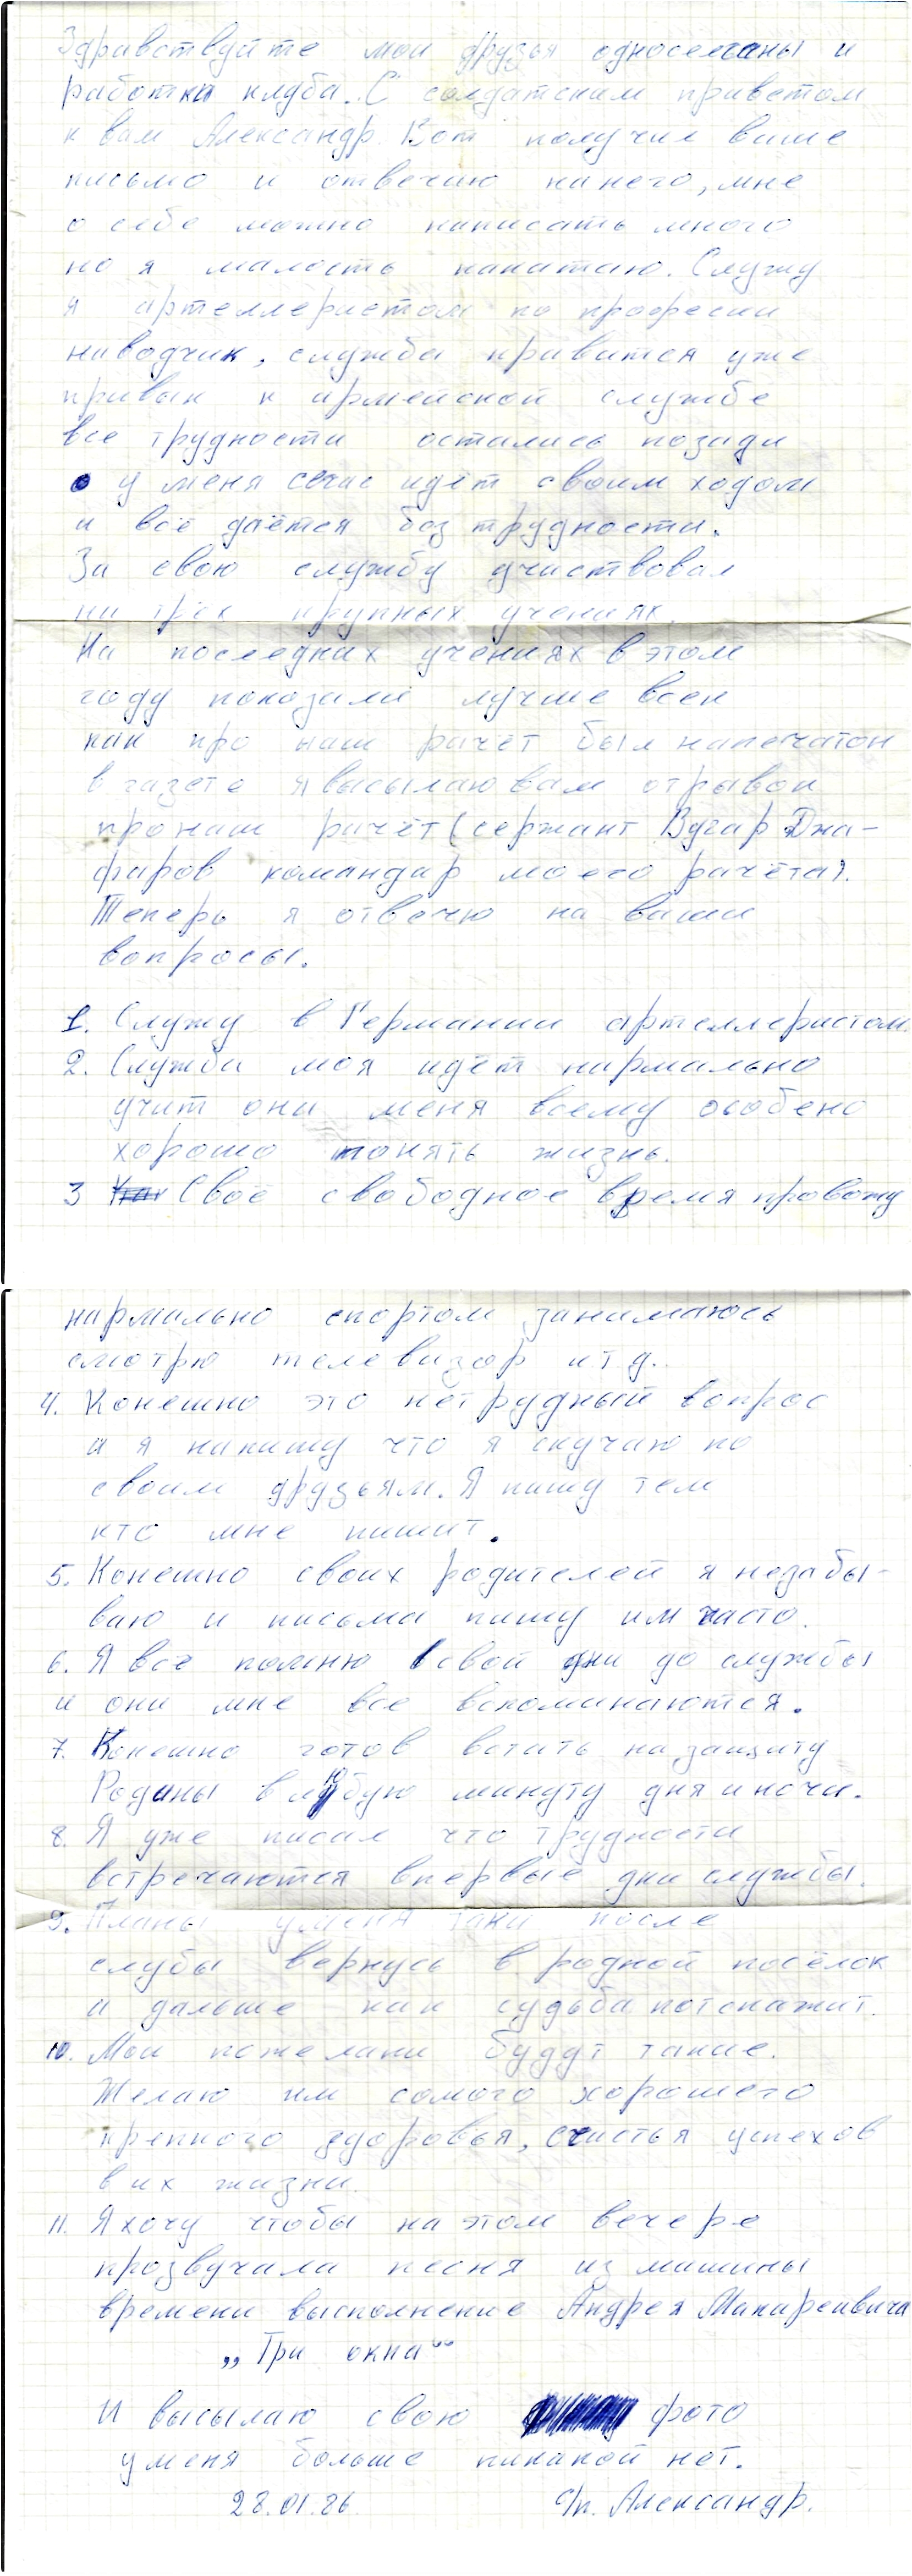 Здравствуйте мои друзья односельчаны и
работки клуба. С солдатским приветом
к вам Александр. Вот получил ваше
письмо и отвечаю нанего, мне
о себе можно написать много
но я малость напишу. Служу
я артеллеристом по професии
наводчик, служба нравится уже
привык к армейской службе
все трудности остались позади
у меня сечас идёт своим ходом
и всё даётся без трудности.
За свою службу участвовал
на трёх крупных учениях.
На последних учениях в этом
году показали лучше всех
как про наш рачёт был напечатон
в газете я высылаю вам отрывок
про наш рачёт (сержант Вугар Джа-
фаров командар моего рачёта).
Теперь я отвечу на ваши
вопросы.
1. Служу в Германии артеллеристом.
2. Служба моя идёт нармально
учит они меня всему особено
хорошо понять жизнь.
3 Своё свободное время провожу
нармально спортом занимаюсь
смотрю телевизор и т д.
4. Конешно это нетрудный вопрос
а я напишу что я скучаю по
своим друзьям. Я пишу тем
кто мне пишит.
5. Конешно своих родителей я незабы-
ваю и письма пишу им часто.
6. Я все помню свои дни до службы
и они мне все вспоминаются.
7. Конешно готов встать на защиту
Родины в любую минуту дня и ночи.
8. Я уже писал что трудности
встречаются впервые дни службы.
9. Планы уменя таки после
слубы вернусь в родной посёлок
а дальше как судьба потскажит.
10. Мои пожелани будут такие.
Желаю им самого хорошего
крепкого здоровья, счастья успехов
в их жизни.
11. Я хочу чтобы на этом вечере
прозвучала песня из машины
времени высполнение Андрея Макаревича
„Три окна"
И высылаю свою фото
уменя больше никакой нет.
28.01.86 с/п. Александр.